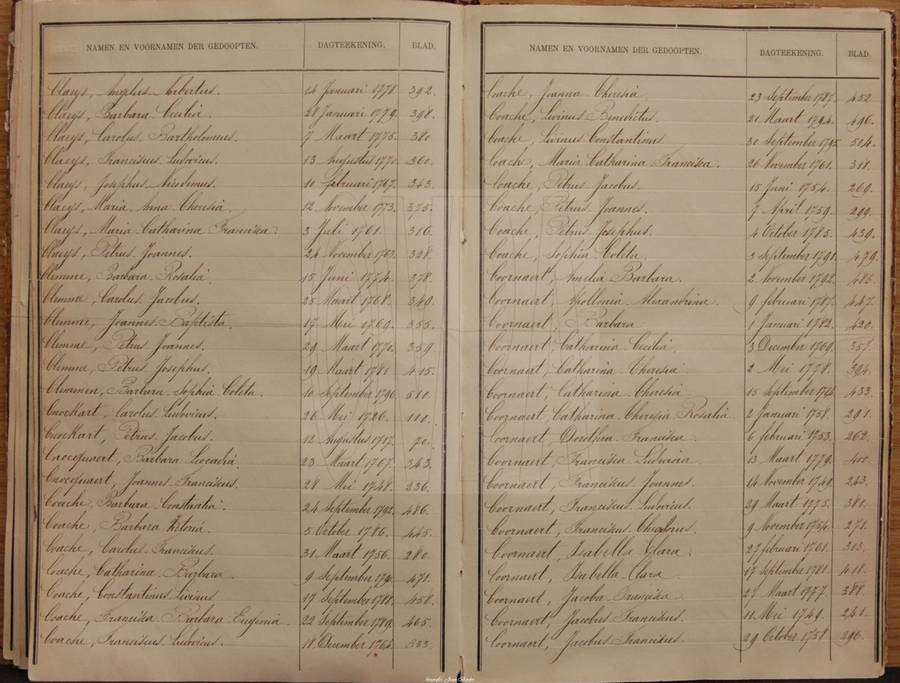 NAMEN EN VOORNAMEN DER GEDOOPTEN. DAGTEEKENING. BLAD.
Claeys, Angelus Albertus. 14 Januari 1778 392.
Claeys, Barbara Cecilia 28 Januari 1779. 398.
Claeys, Carolus Bartholomeus. 7 Maart 1775. 380
Claeys, Franciscus Ludovicus. 13 Augustus 360.
Claeys, Josephus Nicodemus. 10 februari 1767. 343.
Claeys, Maria Anna Theresia. 12 November 1773. 375.
Claeys, Maria Catharina Francisca. 3 Juli 1761. 316.
Claeys, Petrus Joannes. 24 November 1763. 328.
Clemme, Barbara Rosalia 15 Juni 1774. 378.
Clemme, Carolus Jacobus. 25 Maart 1768. 349.
Clemme, Joannes Baptista. 17 Mei 1769. 355.
Clemme, Petrus Joannes. 29 Maart 1770. 359.
Clemme, Petrus Josephus. 19 Maart 1781 415.
Barbara Sophia Coleta. 10 September 1796 510.
Carolus Ludovicus. 26 Mei 1726. 110.
Petrus Jacobus. 12 Augustus 1717. 90.
Barbara Leocadia. 23 Maart 1767. 343.
Joannes Franciscus. 28 Mei 1748. 236.
Coache, Barbara Constantia. 24 September 1792. 486.
Coache, Barbara Victoria. 5 October 1786. 445.
Coache, Carolus Franciscus. 31 Maart 1756. 280.
Coache, Catharina Barbara. 9 September 471.
Coache, Constantinus Livinus 17 September 1788. 458.
Coache, Francisca Barbara Eugenia. 22 September 1789. 465.
Coache, Franciscus Ludovicus. 18 December 1764. 333.
NAMEN EN VOORNAMEN DER GEDOOPTEN. DAGTEEKENING. BLAD.
Coache, Joanna Theresia. 23 September 1787. 452.
Coache, Livinus Benedictus. 21 Maart 1794. 496.
Coache, Livinus Constantinus. 30 September 1795. 504.
Coach, Maria Catharina Francisca. 26 November 1761. 318.
Coache, Petrus Jacobus. 15 Juni 1754. 269.
Coache, Petrus Joannes. 7 April 1759. 299.
Coache, Petrus Josephus. 4 October 1785. 439.
Coache, Sophia Coleta. 3 September 1791. 479.
Coornaert, Amelia Barbara. 2 November 1792. 486.
Coornaert, Apollonia Alexandrina. 9 februari 1787. 447.
Coornaert, Barbara 1 Januari 1782. 420.
Coornaert, Catharina Cecilia. 3 December 1769. 357.
Coornaert, Catharina Theresia. 2 Mei 1778. 394.
Coornaert, Catharina Theresia 15 September 1784. 433.
Coornaert, Catharina Theresia Rosalia 2 Januari 1758. 291.
Coornaert, Dorothea Francisca. 6 februari 1753. 262.
Coornaert, Francisca Ludovica. 13 Maart 1779. 400.
Coornaert, Franciscus Joannes. 14 November 1749. 243.
Coornaert, Franciscus Ludovicus. 29 Maart 1775. 381.
Coornaert, Franciscus Theodorus. 9 November 1754. 271.
Coornaert, Isabella Clara. 27 februari 1761. 313.
Coornaert, Isabella Clara 17 September 1781. 418.
Coornaert, Jacoba Francisca. 27 Maart 288.
Coornaert, Jacobus Franciscus. 11 Mei 1749. 241.
Coornaert, Jacobus Franciscus. 29 October 1758. 296.